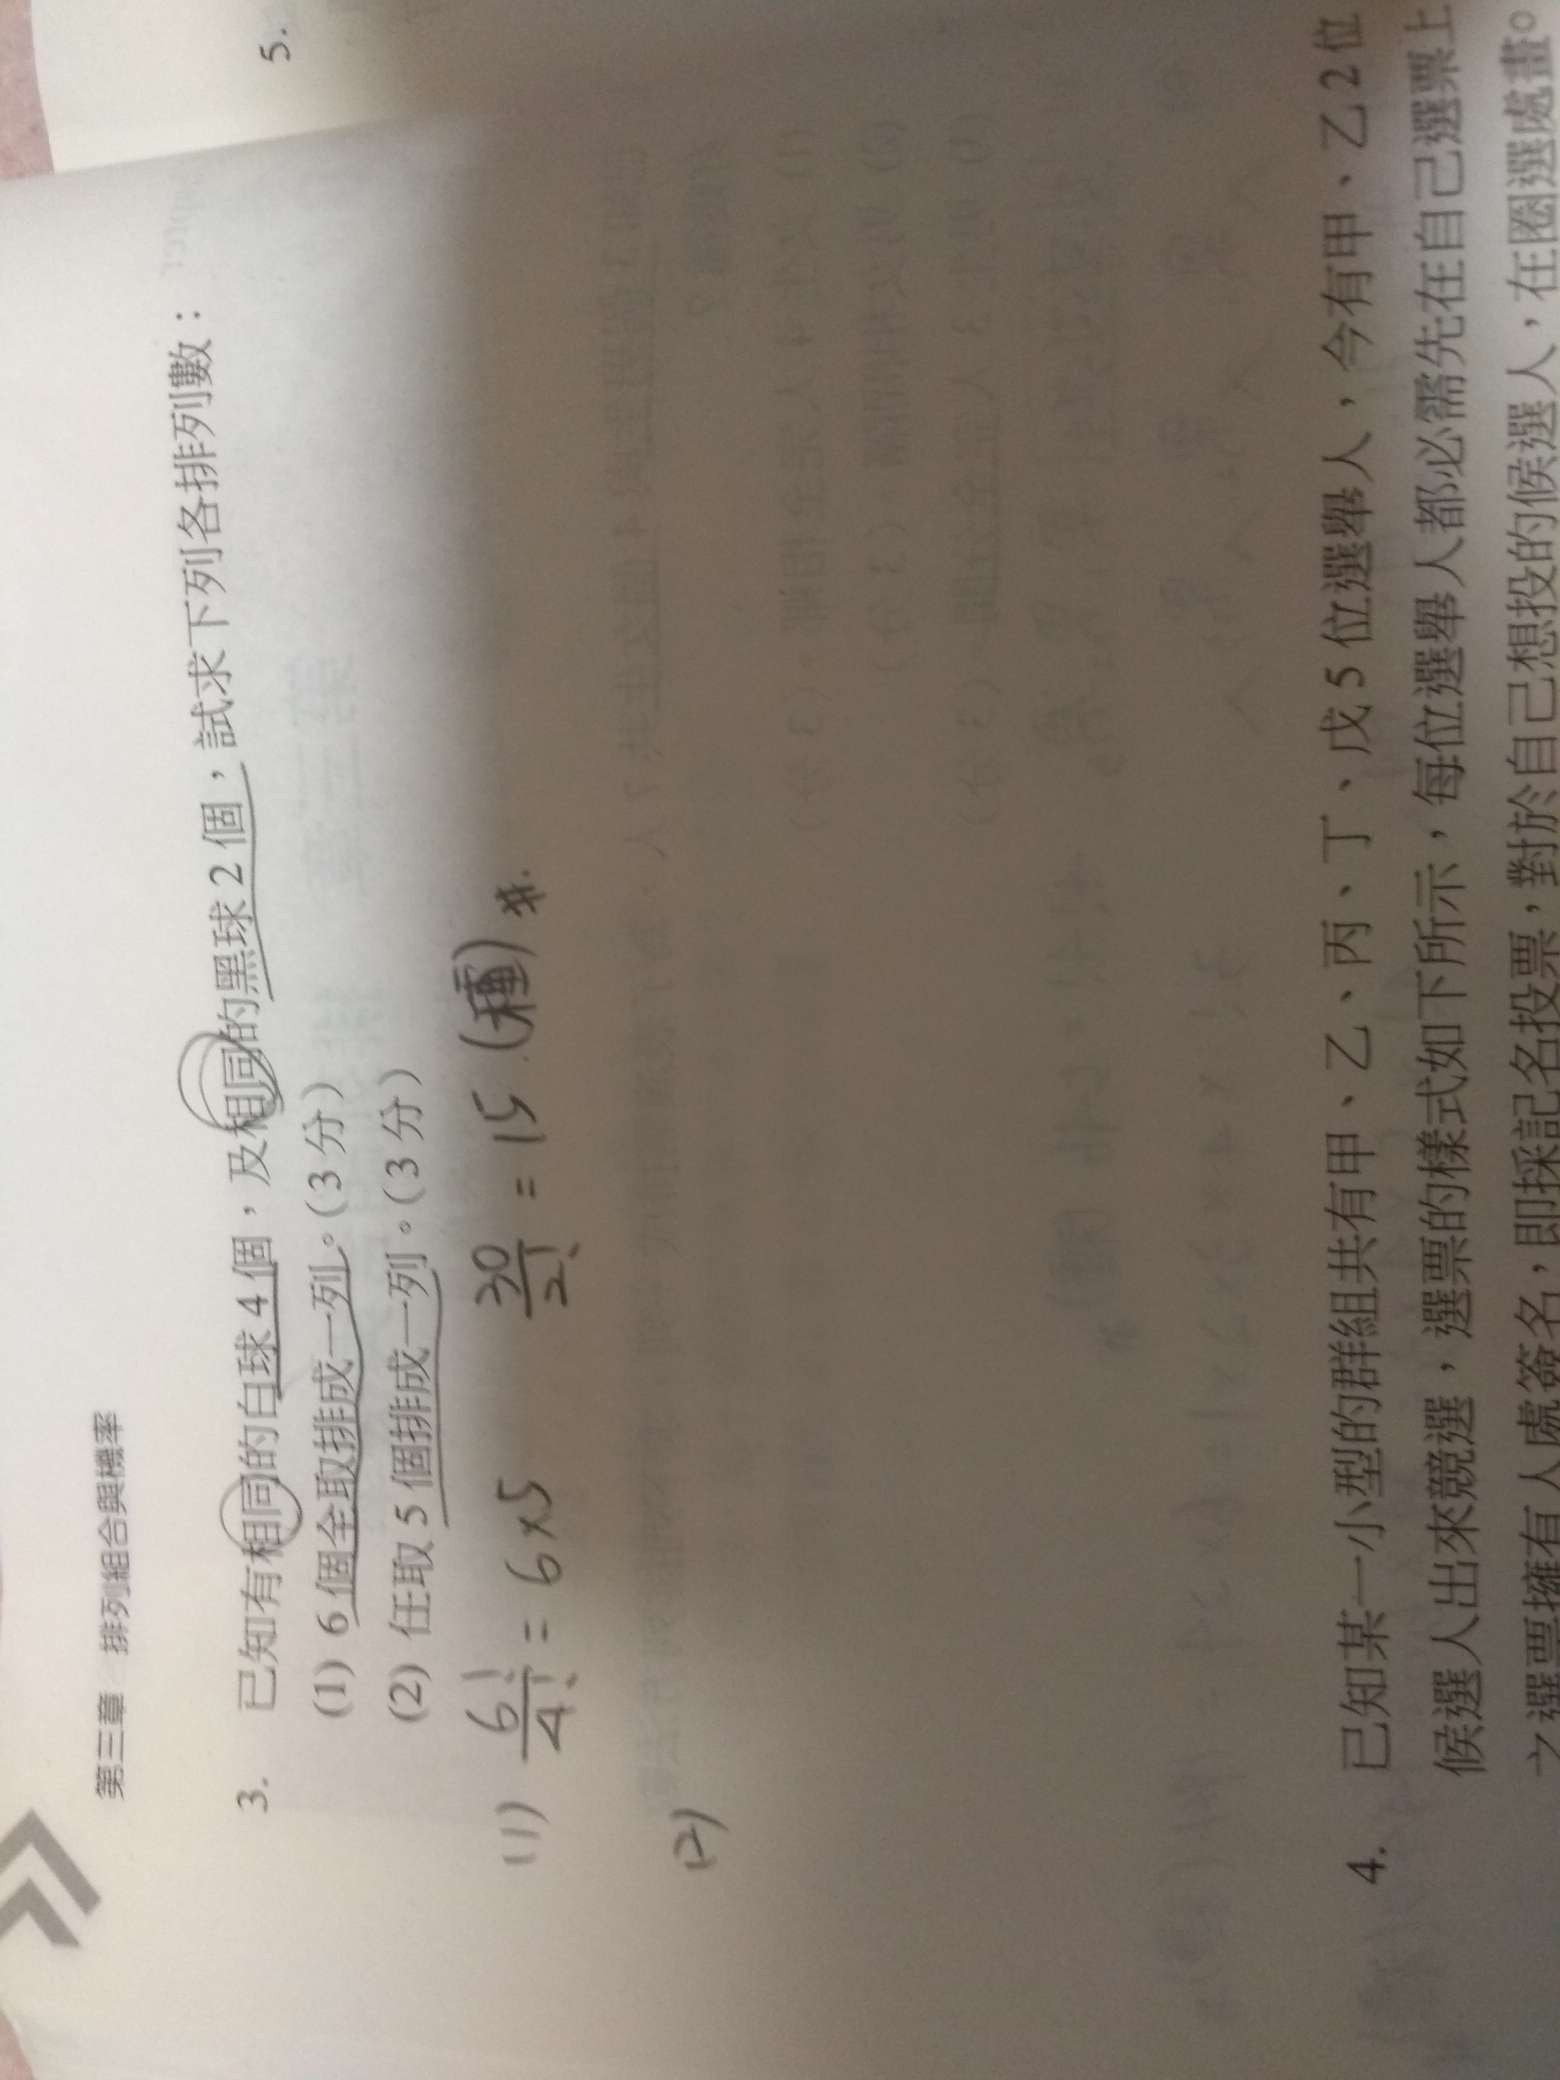 第三章 排列組合與機率
3. 已知有相同的白球4個,及相同的黑球2個,試求下列各排列數:
(1) 6個全取排成一列。(3分)
(2) 任取5個排成一列。(3分)
(1) 6!/4! = 6×5 30/2! = 15 (種) #
(2)
4. 已知某一小型的群組共有甲、乙、丙、丁、戊5位選舉人,今有甲、乙2位
候選人出來競選,選票的樣式如下所示,每位選舉人都必需先在自己選票上
之選票擁有人處簽名,即採記名投票,對於自己想投的候選人,在圈選處畫○
5.